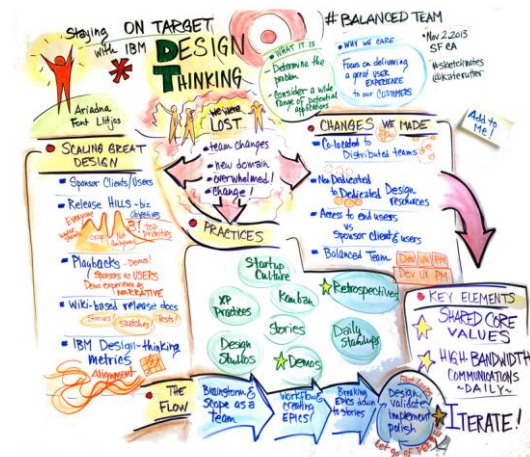 Staying ON TARGET
with IBM DESIGN
THINKING
Ariadna
Font Llitjos
#BALANCED TEAM
• Nov 2, 2013
SF CA
#sketchnotes
@katerutter
• WHAT IT IS
- Determine the
problem
- Consider a wide
range of potential
applications
• WHY WE CARE
Focus on delivering
a great USER
EXPERIENCE
to our CUSTOMERS
Add to
Me!
we were
LOST...
• team changes
• new domain
• overwhelmed!
• change!
SCALING GREAT
DESIGN
Sponsor Clients/Users
Release HILLS - biz
objectives
Everyone
Crisp
No
ambiguous
3 top
priorities
Playbacks - Demos!
Sponsors as USERS
Demo experience as
NARRATIVE
Wiki-based release docs
Stories!
Sketches
Tests!
IBM Design-thinking
metrics
Alignment
CHANGES WE MADE
Co-located to
Distributed teams
No Dedicated
to Dedicated Design
resources
Access to end users
VS
Sponsor client & users
Balanced Team
Dev UX PM
Dev UX PM
PRACTICES
Startup
Culture
XP
Practices
Kanban
Retrospectives
Stories
Design
Studios
Demos
Daily
Standups
KEY ELEMENTS
SHARED CORE
VALUES
HIGH BANDWIDTH
COMMUNICATIONS
~DAILY~
ITERATE!
THE
FLOW
Brainstorm &
Scope as a
Team
Workflow &
creating
EPICS!
Breaking
EPICS down
to stories
Design
validate
implement
polish
Let go of